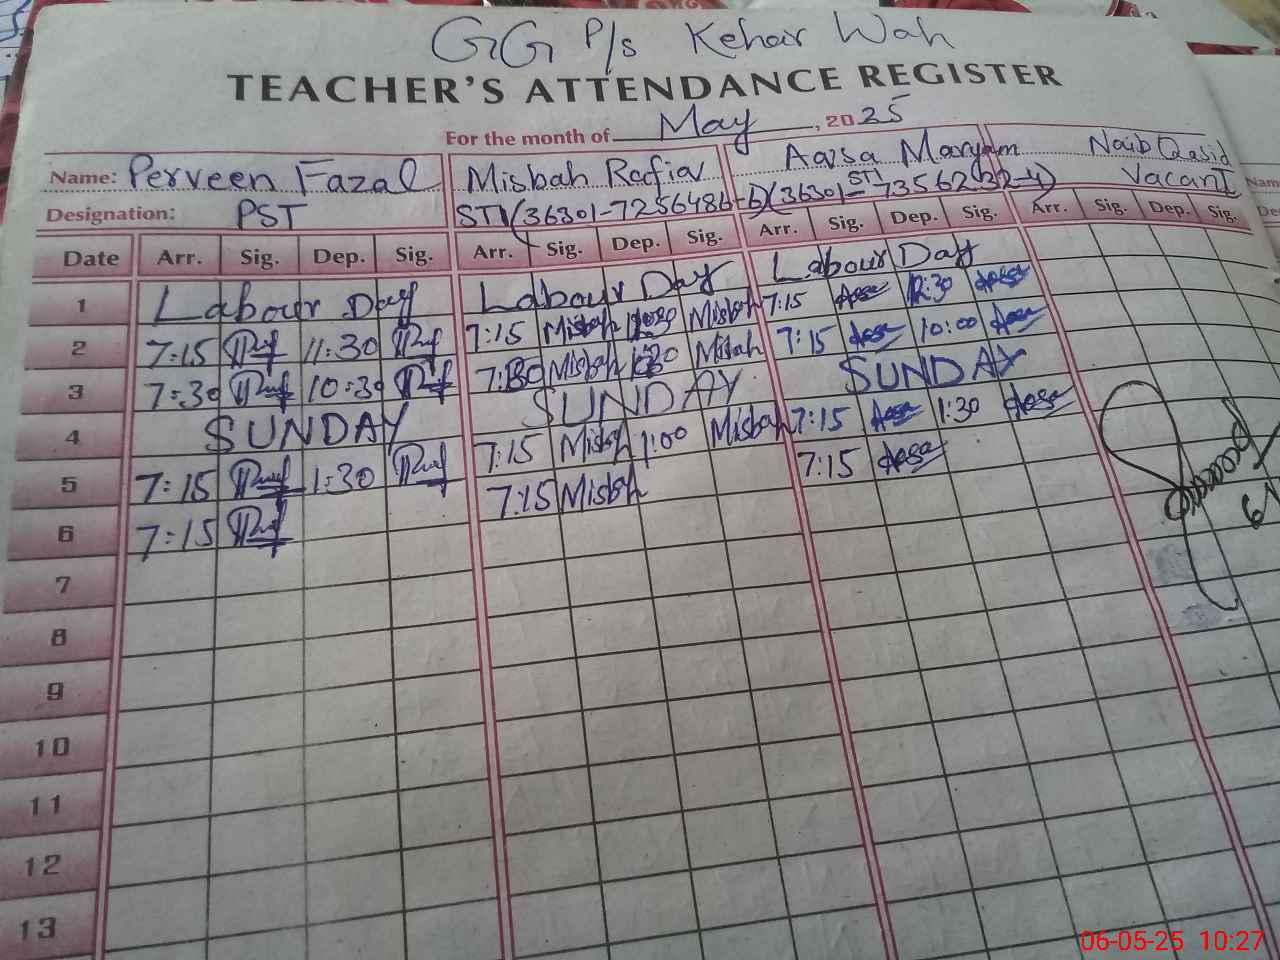 GG P/s Kehar Wah
TEACHER'S ATTENDANCE REGISTER
For the month of May, 2025
Name: Perveen Fazal Misbah Rafiq Aarsa Maryam Naib Qasid
Designation: PST STI (36301-7256486-6) STI (36301-7356232-4) Vacant
Date Arr. Sig. Dep. Sig. Arr. Sig. Dep. Sig. Arr. Sig. Dep. Sig. Arr. Sig. Dep. Sig.
1 Labour Day Labour Day Labour Day
2 7:15 11:30 7:15 Misbah Misbah 7:15 12:30
3 7:30 10:30 7:30 Misbah Misbah 7:15 10:00
4 SUNDAY SUNDAY SUNDAY
5 7:15 1:30 7:15 Misbah 1:00 Misbah 7:15 1:30
6 7:15 7:15 Misbah 7:15
7
8
9
10
11
12
13
06-05-25 10:27